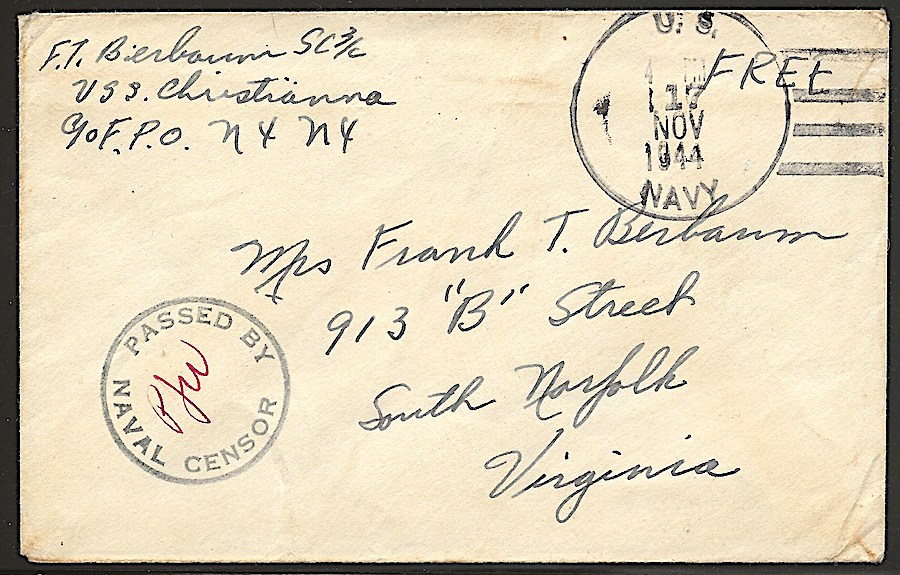 F.T. Bierbaum SC3/c
USS. Christianna
c/o F.P.O. NY NY
U. S.
17
NOV
1944
NAVY
FREE
Mrs Frank T. Bierbaum
913 "B" Street
South Norfolk
Virginia
PASSED BY
NAVAL CENSOR